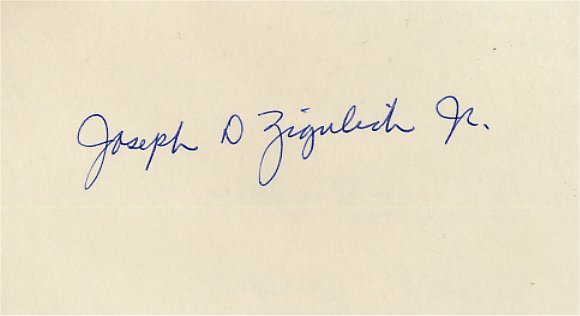 Joseph D Zigulich Jr.